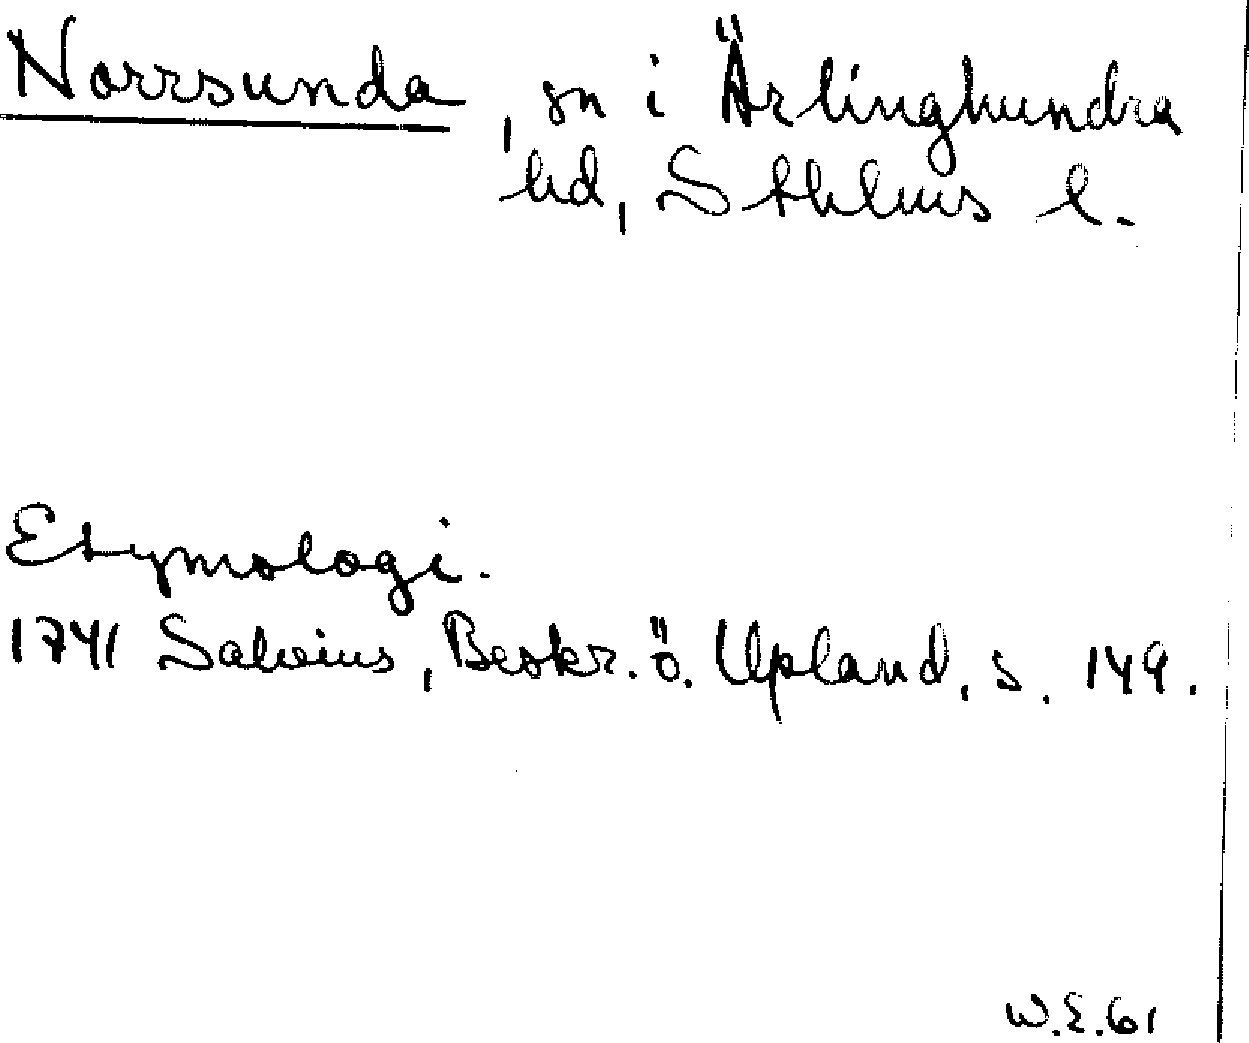 Norrsunda, sn i Ärlinghundra
hd, Sthlms l.
Etymologi.
1741 Salvius, Beskr. ö. Upland, s. 149.
W.E.61